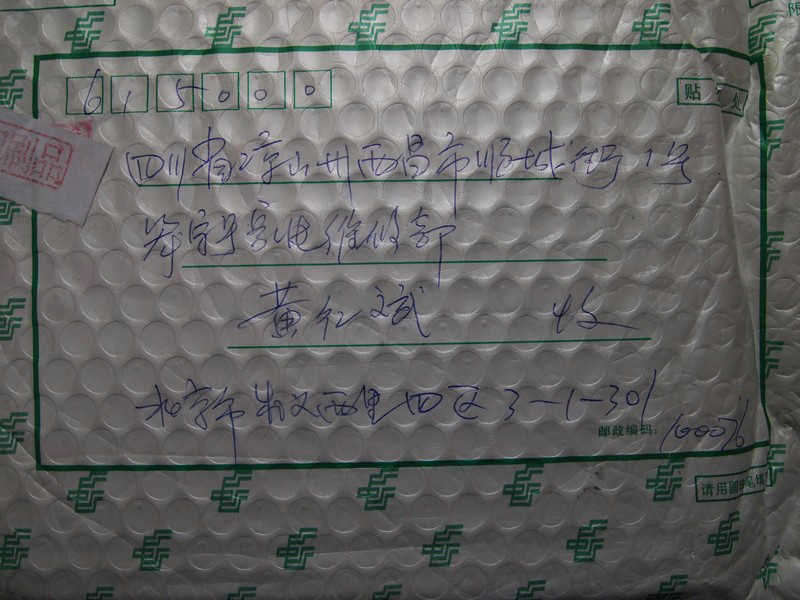 615000
贴 处
四川省凉山州西昌市顺城街1号
家电维修部
黄红斌 收
北京市 西里四区3-1-301
邮政编码: 100076
请用